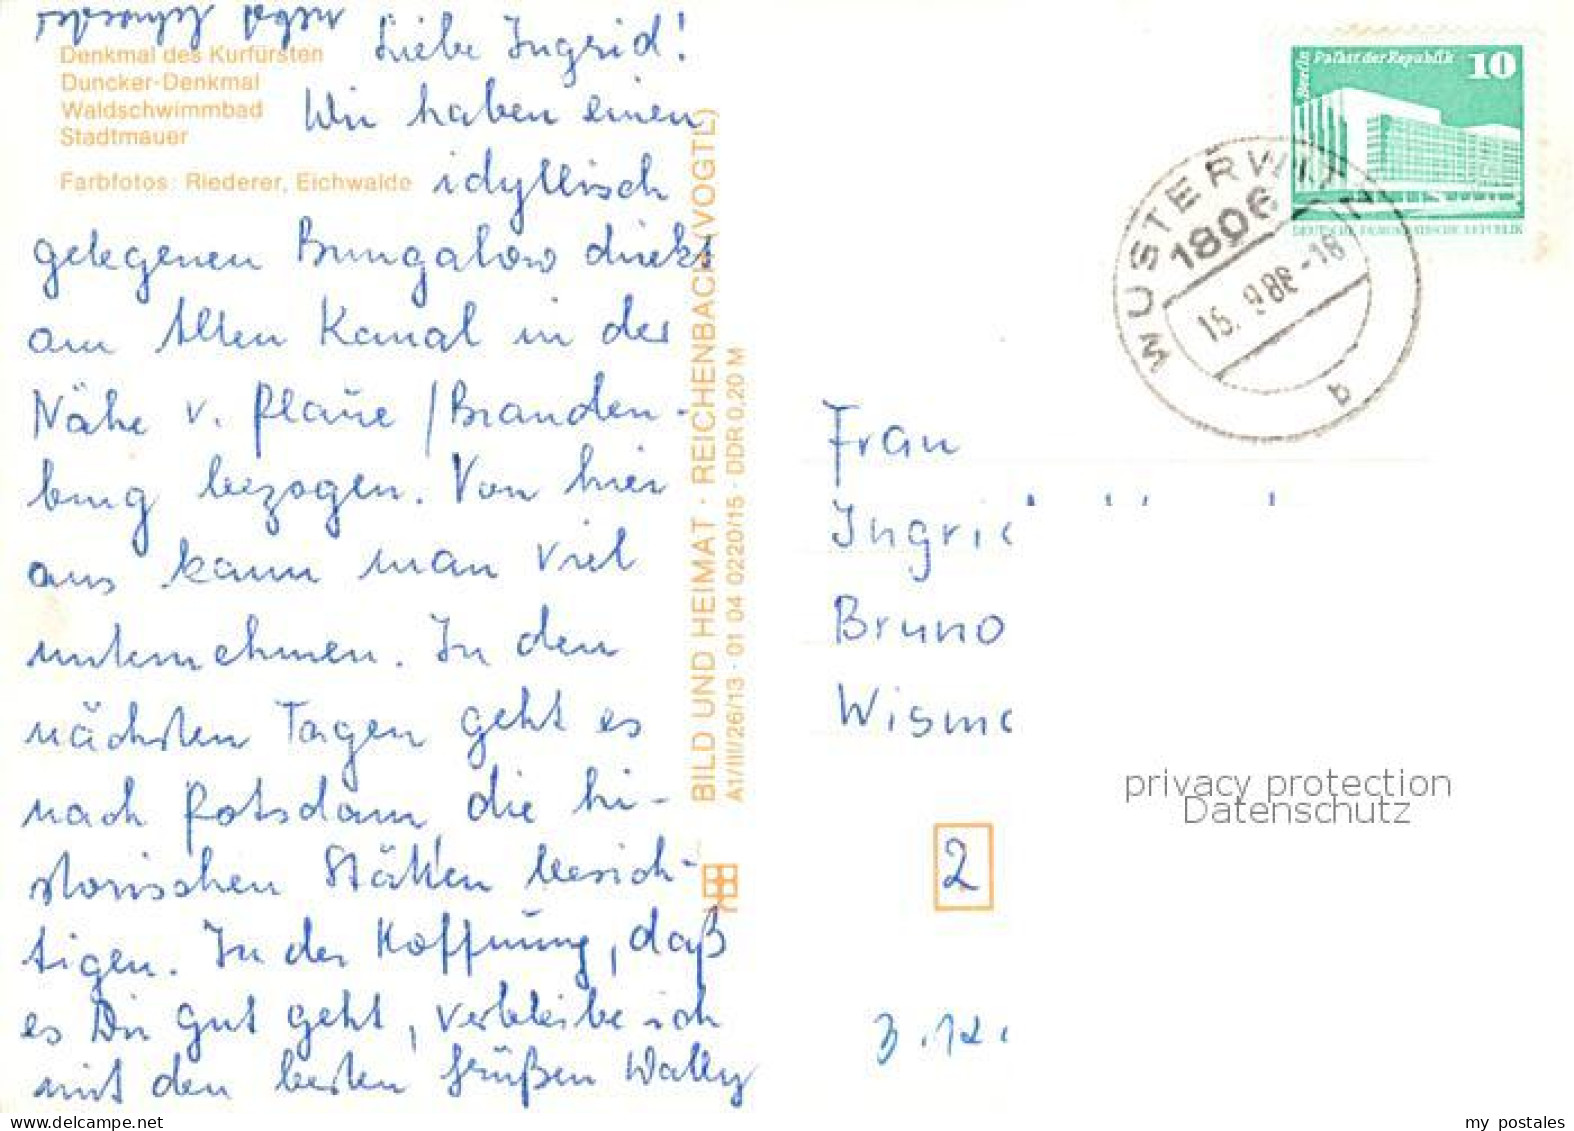 Liebe Ingrid!
Wir haben einen
idyllisch
gelegenen Bungalow direkt
am Alten Kanal in der
Nähe v. Plaue / Branden-
burg bezogen. Von hier
aus kann man viel
unternehmen. In den
nächsten Tagen geht es
nach Potsdam, die hi-
storischen Stätten besich-
tigen. In der Hoffnung, daß
es Dir gut geht, verbleibe ich
mit den besten Grüßen Wally
Denkmal des Kurfürsten
Duncker-Denkmal
Waldschwimmbad
Stadtmauer
Farbfotos: Riederer, Eichwalde
BILD UND HEIMAT · REICHENBACH (VOGTL)
A1/III/26/13 · 01 04 0220/15 · DDR 0,20 M
Berlin Palast der Republik 10
DEUTSCHE DEMOKRATISCHE REPUBLIK
WUSTERWITZ
1806
-18
b
Frau
Ingri
Bruno
Wism
privacy protection
Datenschutz
2
my postales